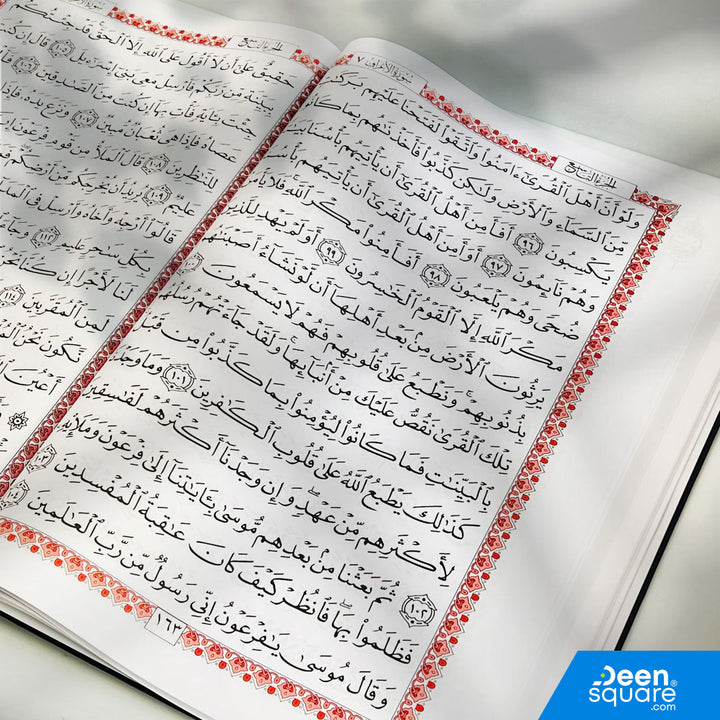 الجزء التاسع
سورة الأعراف ٧
وَلَوْ أَنَّ أَهْلَ ٱلْقُرَىٰٓ ءَامَنُوا۟ وَٱتَّقَوْا۟ لَفَتَحْنَا عَلَيْهِم
مِّنَ ٱلسَّمَآءِ وَٱلْأَرْضِ وَلَٰكِن كَذَّبُوا۟ فَأَخَذْنَٰهُم بِمَا
يَكْسِبُونَ ٩٦ أَفَأَمِنَ أَهْلُ ٱلْقُرَىٰٓ أَن يَأْتِيَهُم بَأْسُنَا
وَهُمْ نَآئِمُونَ ٩٧ أَوَأَمِنَ أَهْلُ ٱلْقُرَىٰٓ أَن يَأْتِيَهُم
ضُحًى وَهُمْ يَلْعَبُونَ ٩٨ أَفَأَمِنُوا۟ مَكْرَ ٱللَّهِ فَلَا
مَكْرَ ٱللَّهِ إِلَّا ٱلْقَوْمُ ٱلْخَٰسِرُونَ ٩٩ أَوَلَمْ يَهْدِ لِلَّذِينَ
يَرِثُونَ ٱلْأَرْضَ مِنۢ بَعْدِ أَهْلِهَآ أَن لَّوْ نَشَآءُ أَصَبْنَٰهُم
بِذُنُوبِهِمْ ۚ وَنَطْبَعُ عَلَىٰ قُلُوبِهِمْ فَهُمْ لَا يَسْمَعُونَ
تِلْكَ ٱلْقُرَىٰ نَقُصُّ عَلَيْكَ مِنْ أَنۢبَآئِهَا ۚ وَلَقَدْ جَآءَتْهُمْ رُسُلُهُم
بِٱلْبَيِّنَٰتِ فَمَا كَانُوا۟ لِيُؤْمِنُوا۟ بِمَا كَذَّبُوا۟ مِن قَبْلُ
كَذَٰلِكَ يَطْبَعُ ٱللَّهُ عَلَىٰ قُلُوبِ ٱلْكَٰفِرِينَ ١٠١ وَمَا وَجَدْنَا
لِأَكْثَرِهِم مِّنْ عَهْدٍ ۖ وَإِن وَجَدْنَآ أَكْثَرَهُمْ لَفَٰسِقِينَ
١٠٢ ثُمَّ بَعَثْنَا مِنۢ بَعْدِهِم مُّوسَىٰ بِـَٔايَٰتِنَآ إِلَىٰ فِرْعَوْنَ وَمَلَإِيْهِ
فَظَلَمُوا۟ بِهَا ۖ فَٱنظُرْ كَيْفَ كَانَ عَٰقِبَةُ ٱلْمُفْسِدِينَ
وَقَالَ مُوسَىٰ يَٰفِرْعَوْنُ إِنِّى رَسُولٌ مِّن رَّبِّ ٱلْعَٰلَمِينَ
١٦٣
الجزء التاسع
حَقِيقٌ عَلَىٰٓ أَن لَّآ أَقُولَ عَلَى ٱللَّهِ إِلَّا ٱلْحَقَّ ۚ قَدْ جِئْتُكُم
بِبَيِّنَةٍ مِّن رَّبِّكُمْ فَأَرْسِلْ مَعِىَ بَنِىٓ إِسْرَٰٓءِيلَ ١٠٥ قَالَ إِن كُنتَ
جِئْتَ بِـَٔايَةٍ فَأْتِ بِهَآ إِن كُنتَ مِنَ ٱلصَّٰدِقِينَ ١٠٦
عَصَاهُ فَإِذَا هِىَ ثُعْبَانٌ مُّبِينٌ ١٠٧ وَنَزَعَ يَدَهُۥ فَإِذَا
لِلنَّٰظِرِينَ ١٠٨ قَالَ ٱلْمَلَأُ مِن قَوْمِ فِرْعَوْنَ
عَلِيمٌ ١٠٩ يُرِيدُ أَن يُخْرِجَكُم مِّنْ أَرْضِكُمْ
قَالُوٓا۟ أَرْجِهْ وَأَخَاهُ وَأَرْسِلْ فِى ٱلْمَدَآئِنِ
بِكُلِّ سَٰحِرٍ عَلِيمٍ ١١٢ وَجَآءَ
لَنَا لَأَجْرًا إِن كُنَّا
لَمِنَ ٱلْمُقَرَّبِينَ ١١٤
نَّكُونَ نَحْنُ
أَعْيُنَ
Deen
square®
.com